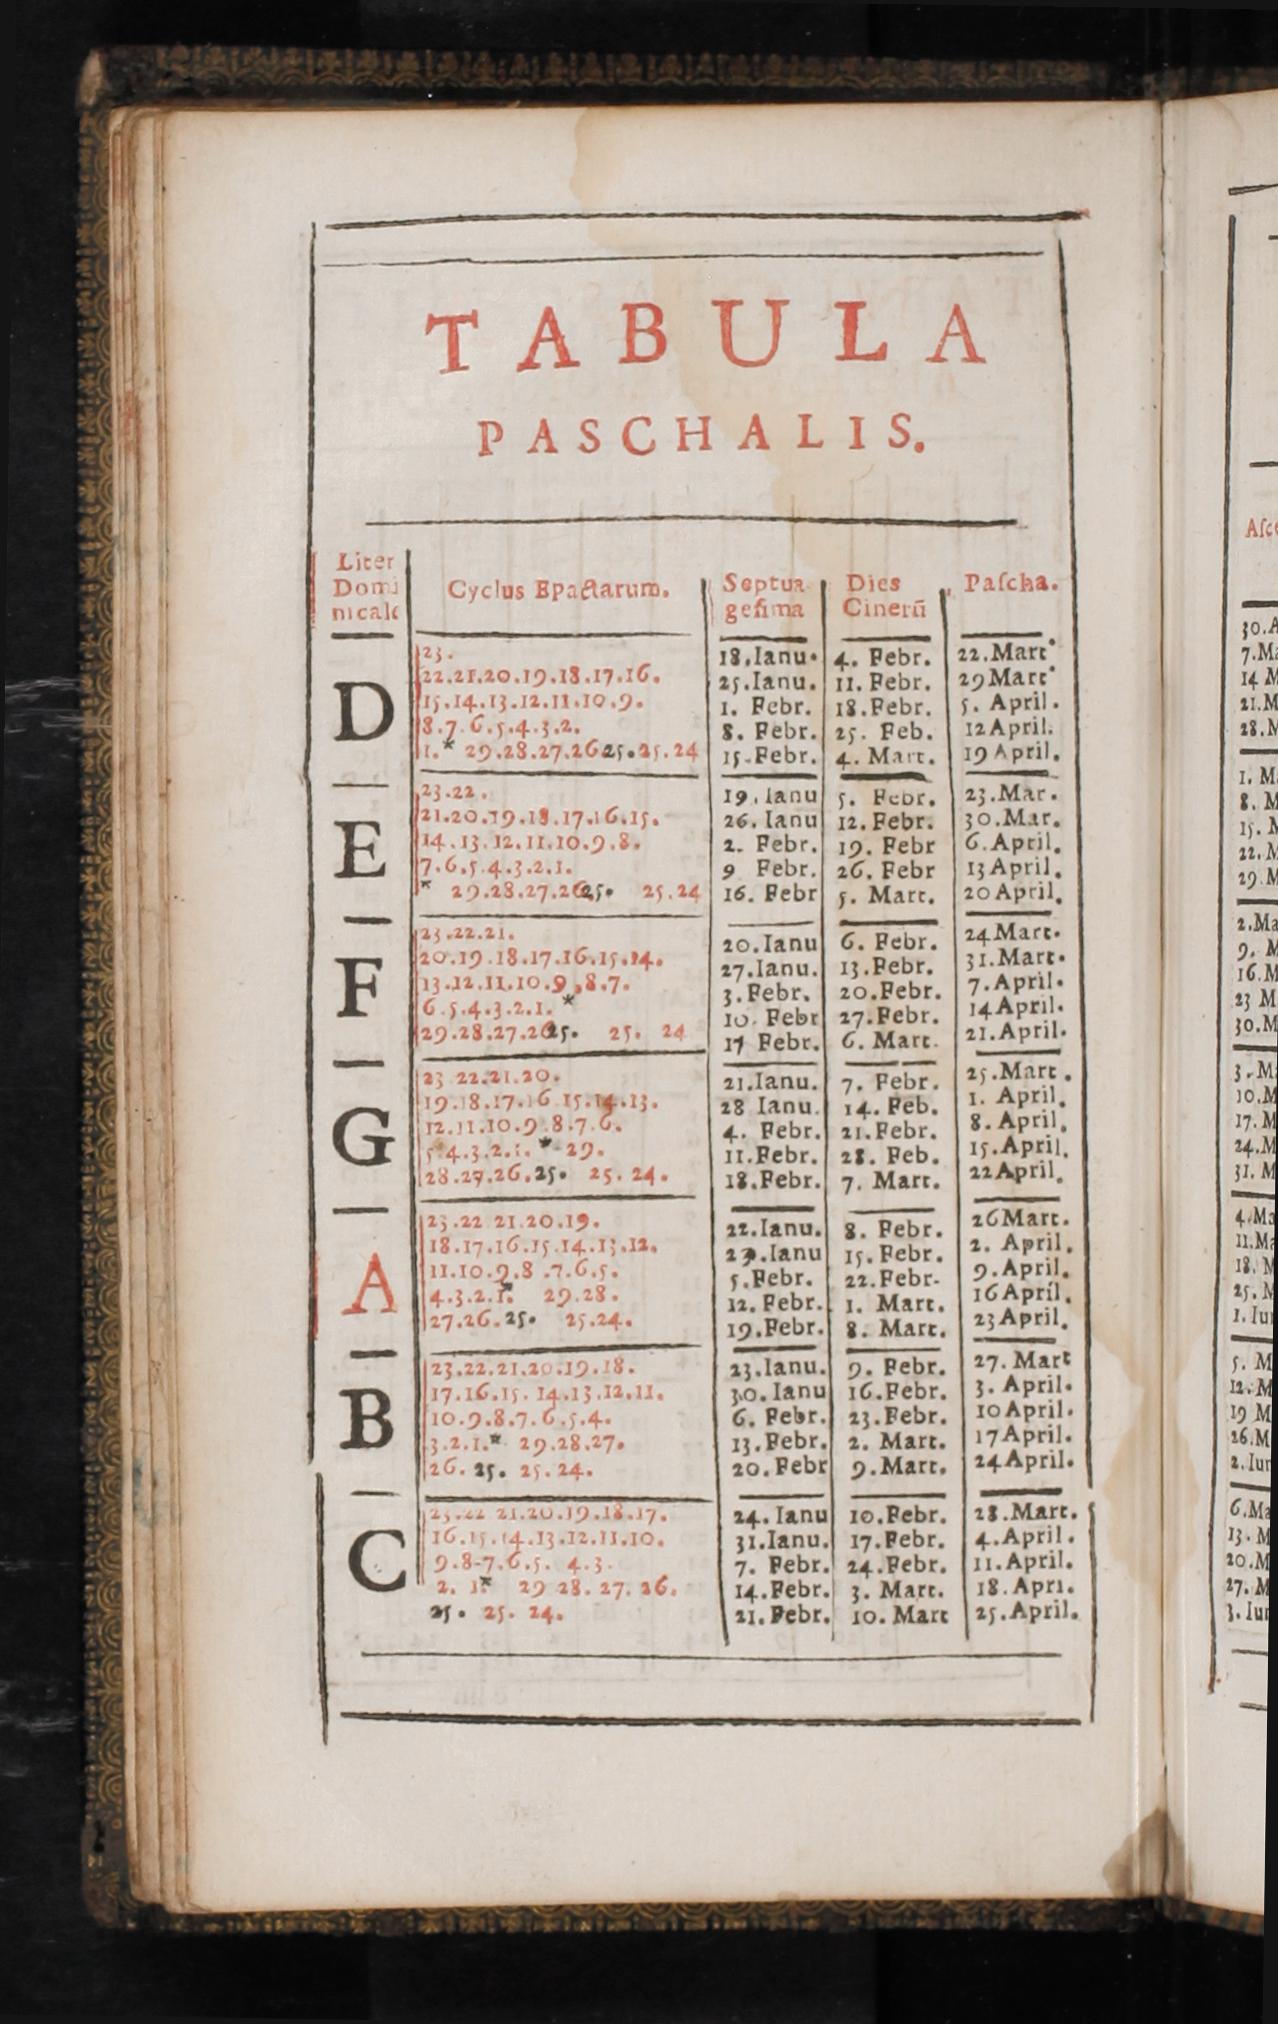 TABULA
PASCHALIS.
Liter Domi nicale Cyclus Epactarum. Septua gesima Dies Cinerũ Pascha.
D
23. 18.Ianu. 4. Febr. 22.Mart.
22.21.20.19.18.17.16. 25.Ianu. 11. Febr. 29Mart.
15.14.13.12.11.10.9. 1. Febr. 18.Febr. 5. April.
8.7.6.5.4.3.2. 8. Febr. 25. Feb. 12April.
1.* 29.28.27.26 25. 25.24 15.Febr. 4. Mart. 19April.
E
23.22. 19.Ianu 5. Febr. 23.Mar.
21.20.19.18.17.16.15. 26. Ianu 12.Febr. 30.Mar.
14.13.12.11.10.9.8. 2. Febr. 19. Febr 6.April.
7.6.5.4.3.2.1. 9 Febr. 26. Febr 13April.
* 29.28.27.26 25. 25.24 16. Febr 5. Mart. 20April.
F
23.22.21. 20.Ianu 6. Febr. 24Mart.
20.19.18.17.16.15.14. 27.Ianu. 13.Febr. 31.Mart.
13.12.11.10.9.8.7. 3.Febr. 20.Febr. 7.April.
6.5.4.3.2.1.* 10. Febr 27.Febr. 14April.
29.28.27.26 25. 25. 24 17 Febr. 6. Mart. 21.April.
G
23 22.21.20. 21.Ianu. 7. Febr. 25.Mart.
19.18.17.16 15.14.13. 28 Ianu. 14. Feb. 1. April.
12.11.10.9.8.7.6. 4. Febr. 21.Febr. 8. April.
5.4.3.2.1. * 29. 11.Febr. 28. Feb. 15.April.
28.27.26.25. 25. 24. 18.Febr. 7. Mart. 22April.
A
23.22 21.20.19. 22.Ianu. 8. Febr. 26Mart.
18.17.16.15.14.13.12. 29.Ianu 15.Febr. 2. April.
11.10.9.8.7.6.5. 5.Febr. 22.Febr. 9.April.
4.3.2.1.* 29.28. 12. Febr. 1. Mart. 16April.
27.26.25. 25.24. 19.Febr. 8. Mart. 23April.
B
23.22.21.20.19.18. 23.Ianu. 9. Febr. 27. Mart
17.16.15. 14.13.12.11. 30.Ianu 16.Febr. 3. April.
10.9.8.7.6.5.4. 6. Febr. 23.Febr. 10April.
3.2.1.* 29.28.27. 13.Febr. 2. Mart. 17April.
26. 25. 25.24. 20.Febr 9.Mart. 24April.
C
23.22 21.20.19.18.17. 24. Ianu 10.Febr. 28.Mart.
16.15.14.13.12.11.10. 31.Ianu. 17.Febr. 4.April.
9.8-7.6.5. 4.3. 7. Febr. 24.Febr. 11.April.
2. 1.* 29 28. 27. 26. 14.Febr. 3. Mart. 18.Apri.
25. 25. 24. 21.Febr. 10. Mart 25.April.